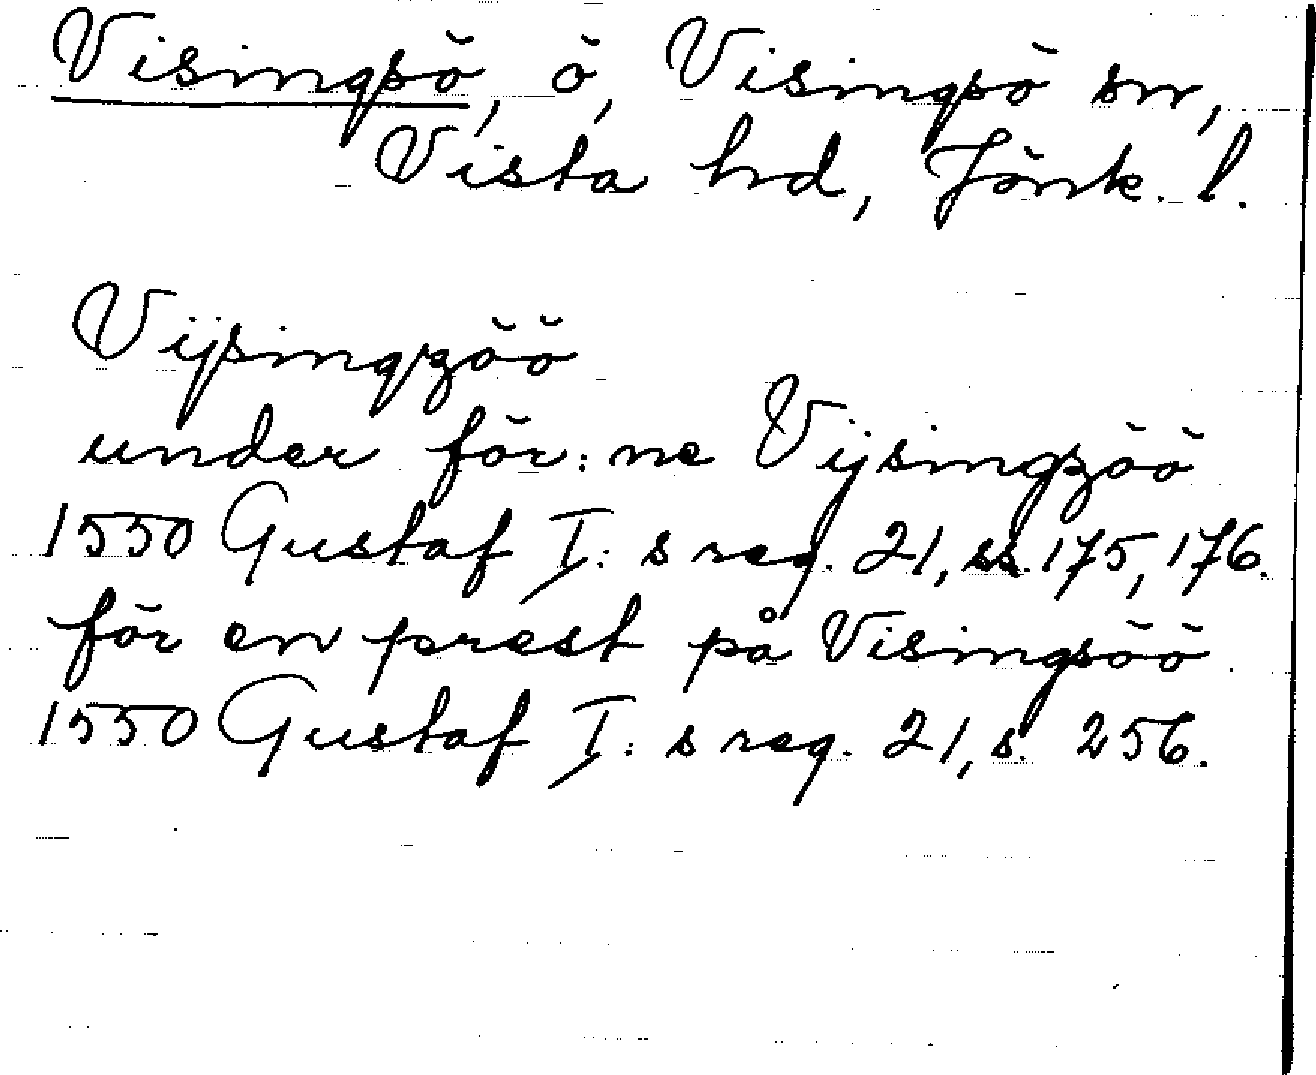 Visingsö, ö, Visingsö sn,
Vista hd, Jönk. l.
Vijsingzöö
under för:ne Vijsingzöö
1550 Gustaf I:s reg. 21, ss. 175, 176.
för en prest på Visingsöö
1550 Gustaf I:s reg. 21, s. 256.